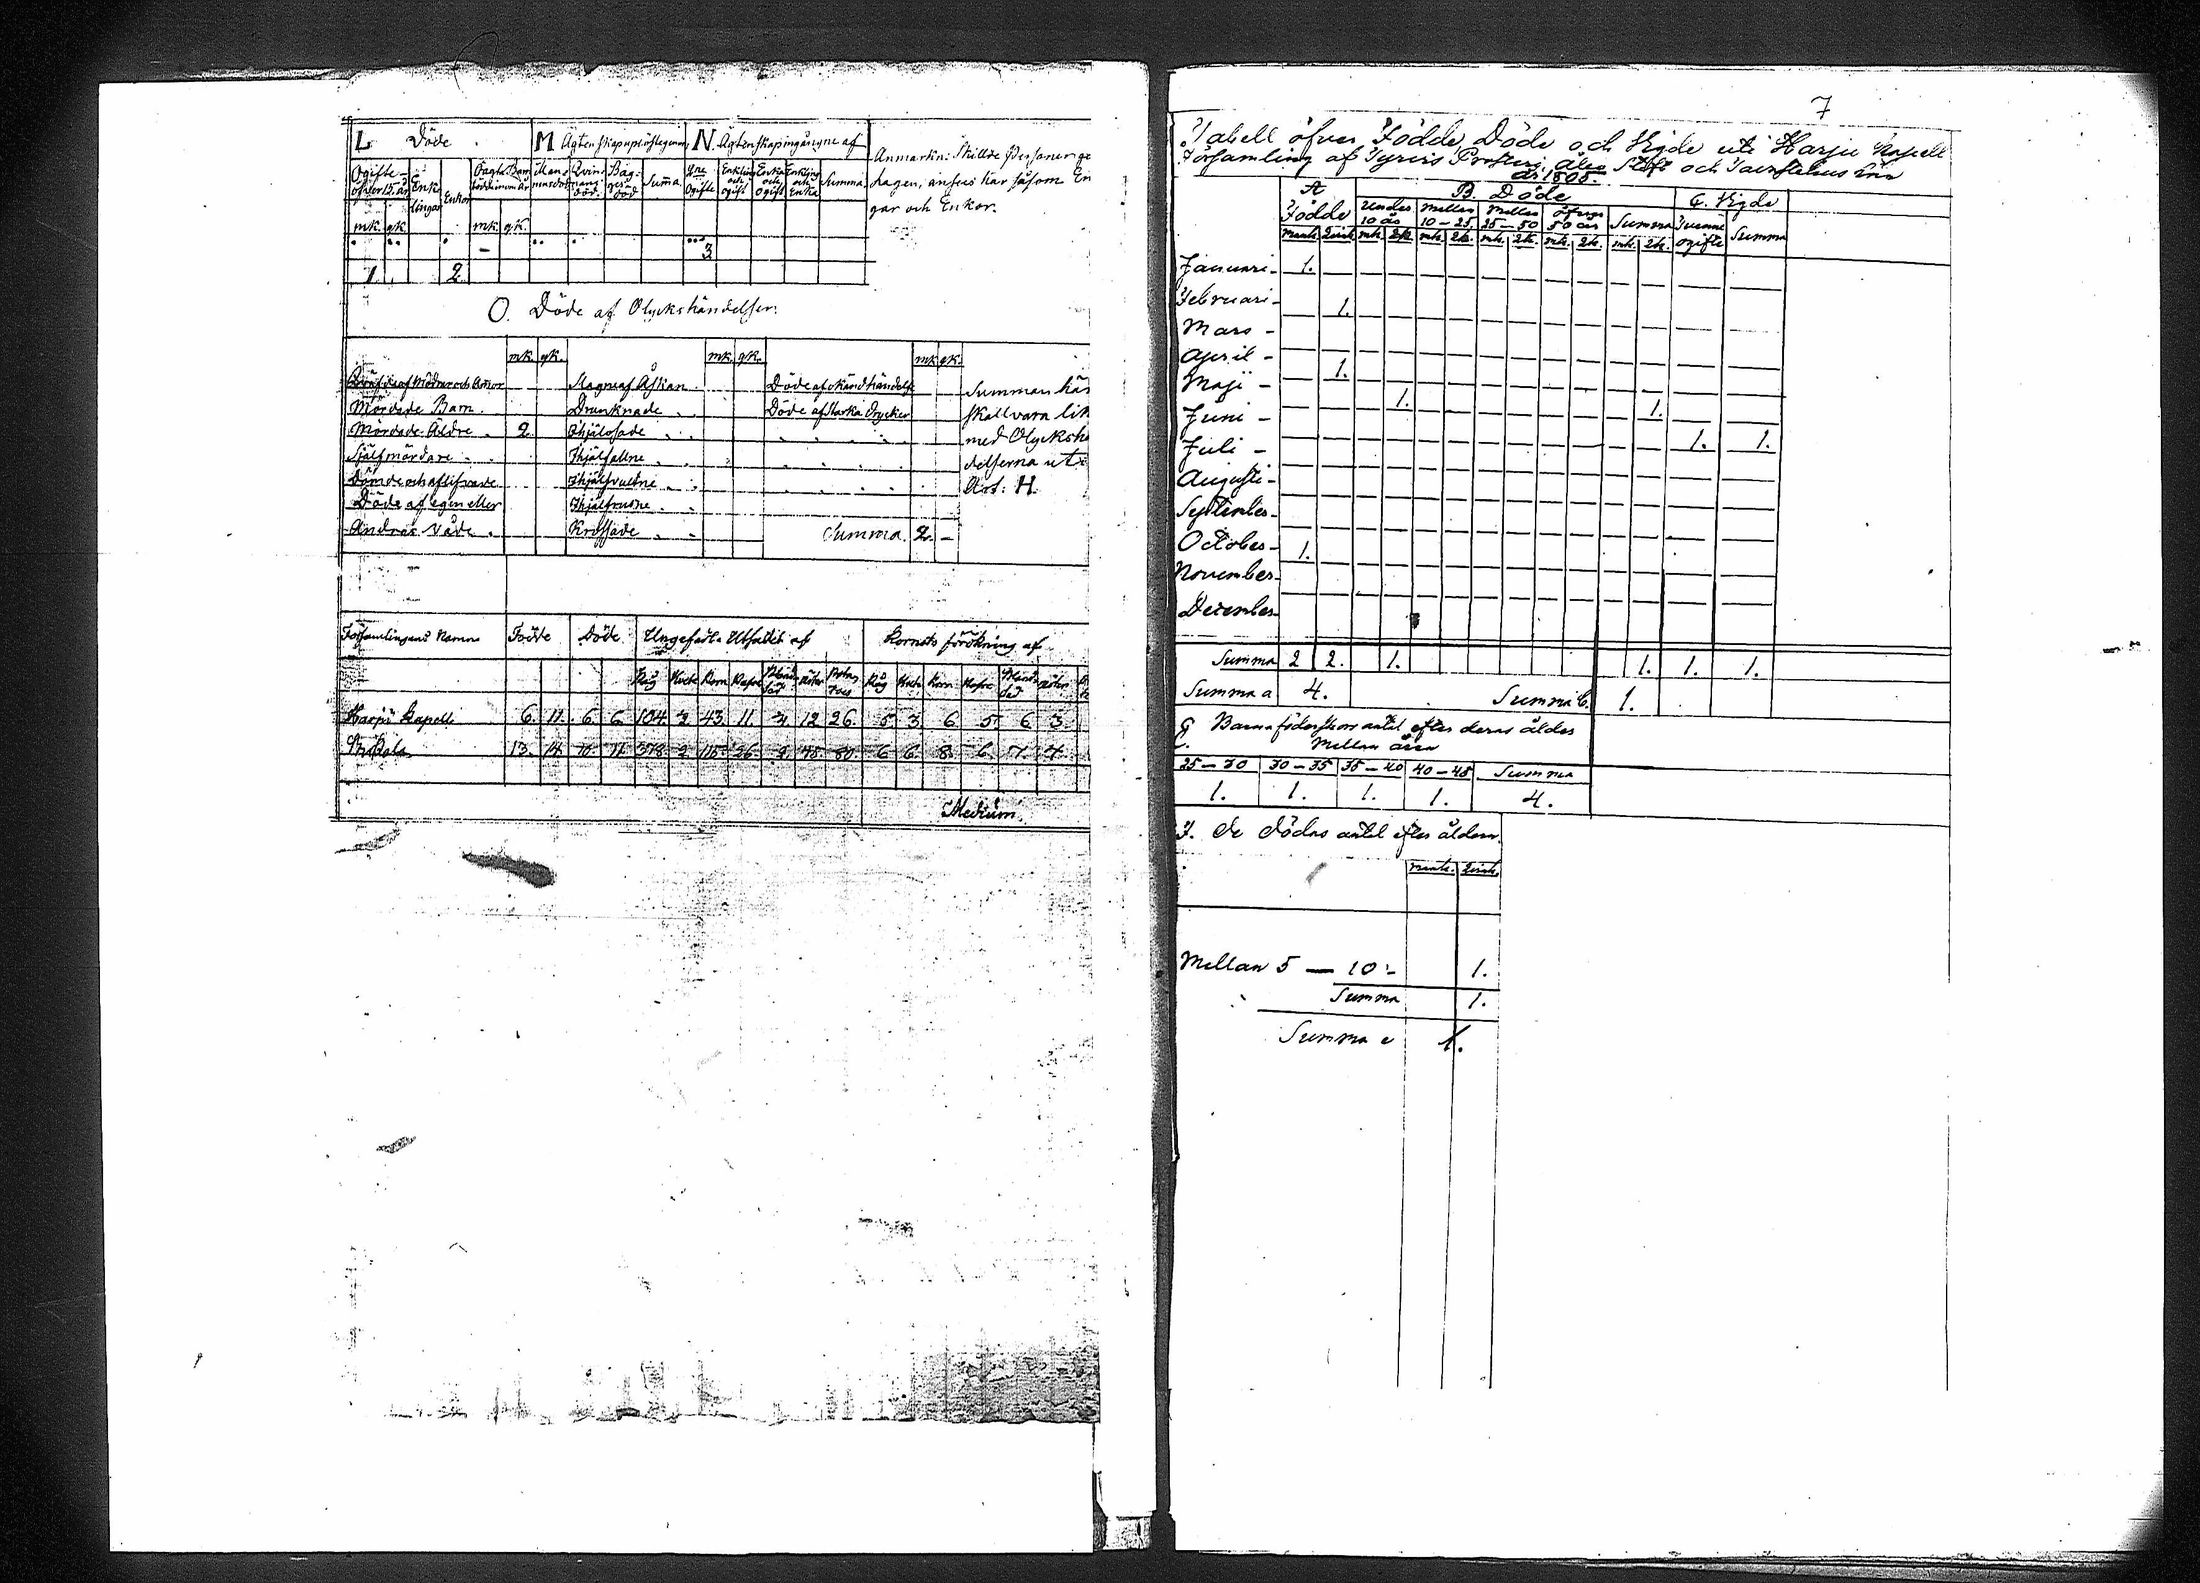 L Döde . M Ägtenskapsupslösgenom N Ägtenskapingångne af
Ogifte öfver 15 år Enklingar Enkor Mans Qvinns död Summa Yne Ogifte Enkling och ogift Enka och Ogift Enkling och Enka Summa
mk. qk. mk. qk.
3
1. 2
Anmärkn: Skillde Personer
hagen, anses här såsom En
gar och Enkor.
O. Döde af Olyckshändelser.
mk. qk. mk. qk. mk. qk.
Slagne af Åskan Döde af okänd händelse
Mördade Barn. Drunknade . . Döde af starka Drycker
Mördade Äldre . 2. Ihjälosade . .
Självmördare . . Ihjälfallne . .
Ihjälsvultne . .
Döde af egen eller Ihjälfrusne . .
Andras Våde . Krossade . . Summa. 2. –
Summan här
skall vara lik
med Olycksh
delserna uti
Art: H.
Församlingens Namn Födde Döde Ungefärl. Utfallet af Kornets förökning af
Råg Hvete Korn Hafre Bland säd Ärter Potates Råg Hvete Korn Hafre Bland säd Ärter
Harju Kapell 6. 11. 6. 6. 104. 3 43. 11. 3. 12 26. 5 3. 6 5. 6 3.
13. 14. 10. 11. 373. 2 115. 26. 2. 48. 80. 6 6. 8. 6. 7. 4.
Medium.
7
Tabell öfver Födde, Döde och Vigde uti Harju Kapell
Församling af Prosteri, Åbo Stift och Tavastehus Län
år 1805.
A B. Döde C. Vigde
Födde Under 10 år Mellan 10–25 Mellan 25–50 öfver 50 år Summa ogifte Summa
mank. Qvink. mk. Qk. mk. Qk. mk. Qk. mk. Qk. mk. Qk.
Januari – 1.
Februari – 1.
Mars –
April – 1.
Maji –
Juni – 1. 1.
Juli – 1. 1.
Augusti –
September –
October – 1.
November –
December –
Summa 2 2. 1. 1. 1. 1.
Summa a 4. Summa b. 1.
G. Barnaföderskors antal efter deras ålder
Mellan åren
25–30 30–35 35–40 40–45 Summa
1. 1. 1. 1. 4.
De dödas antal efter åldern.
mank. Qvink.
Mellan 5 — 10:- 1.
Summa 1.
Summa e 1.